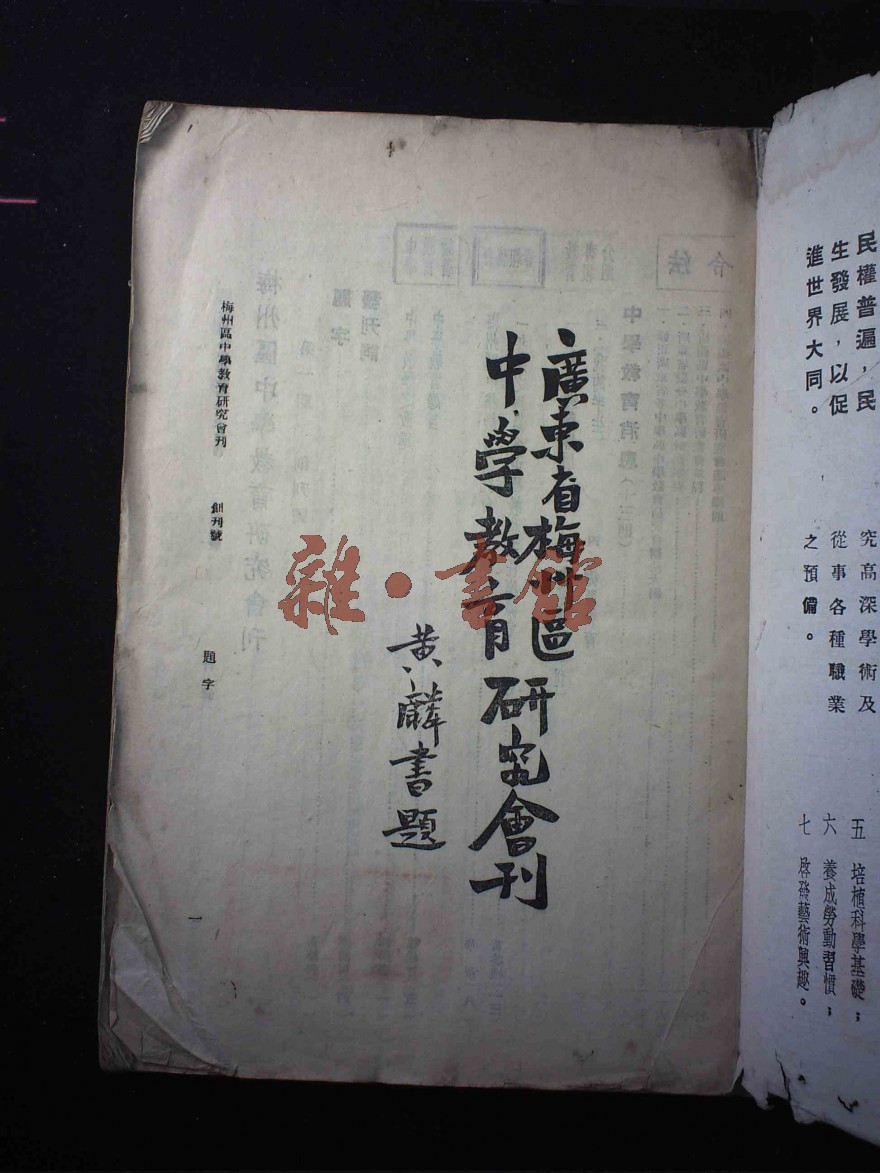 民權普遍，民
生發展，以促
進世界大同。
究高深學術及
從事各種職業
之預備。
五 培植科學基礎；
六 養成勞動習慣；
七 啓發藝術興趣。
廣東省梅州區
中學教育研究會刊
黃麟書題
梅州區中學教育研究會刊 創刊號 題字 一
雜·書館